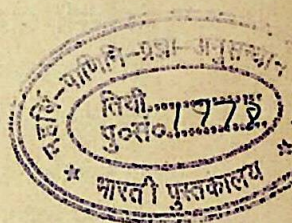 महर्षि-पाणिनि-प्रज्ञा-अनुसन्धान
तिथी..................
पु०सं०1978
* भारती पुस्तकालय *